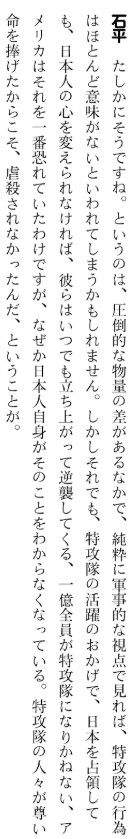 石平　たしかにそうですね。というのは、圧倒的な物量の差があるなかで、純粋に軍事的な視点で見れば、特攻隊の行為
はほとんど意味がないといわれてしまうかもしれません。しかしそれでも、特攻隊の活躍のおかげで、日本を占領して
も、日本人の心を変えられなければ、彼らはいつでも立ち上がって逆襲してくる、一億全員が特攻隊になりかねない、ア
メリカはそれを一番恐れていたわけですが、なぜか日本人自身がそのことをわからなくなっている。特攻隊の人々が尊い
命を捧げたからこそ、虐殺されなかったんだ、ということが。